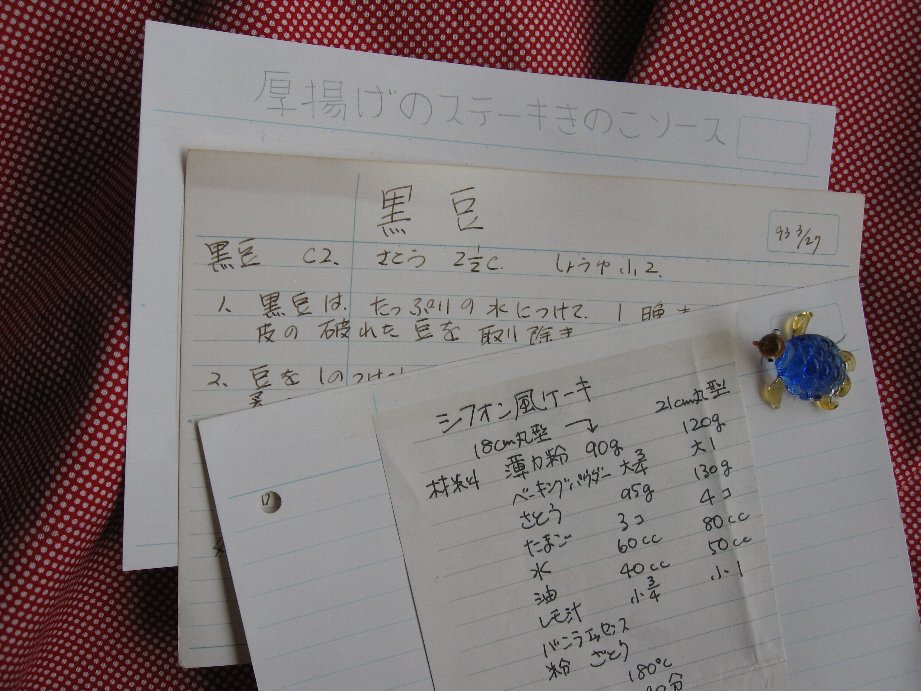 厚揚げのステーキきのこソース
黒豆
93 3/27
黒豆 C2. さとう 2½C. しょうゆ 小2.
1. 黒豆は、たっぷりの水につけて、1晩
皮の破れた豆を取り除き
2. 豆を1のつけ
シフォン風ケーキ
18cm丸型 21cm丸型
材料 薄力粉 90g 120g
ベーキングパウダー 大¾ 大1
さとう 95g 130g
たまご 3コ 4コ
水 60cc 80cc
油 40cc 50cc
レモ汁 小¾ 小1
バニラエッセンス
粉ざとう
180℃